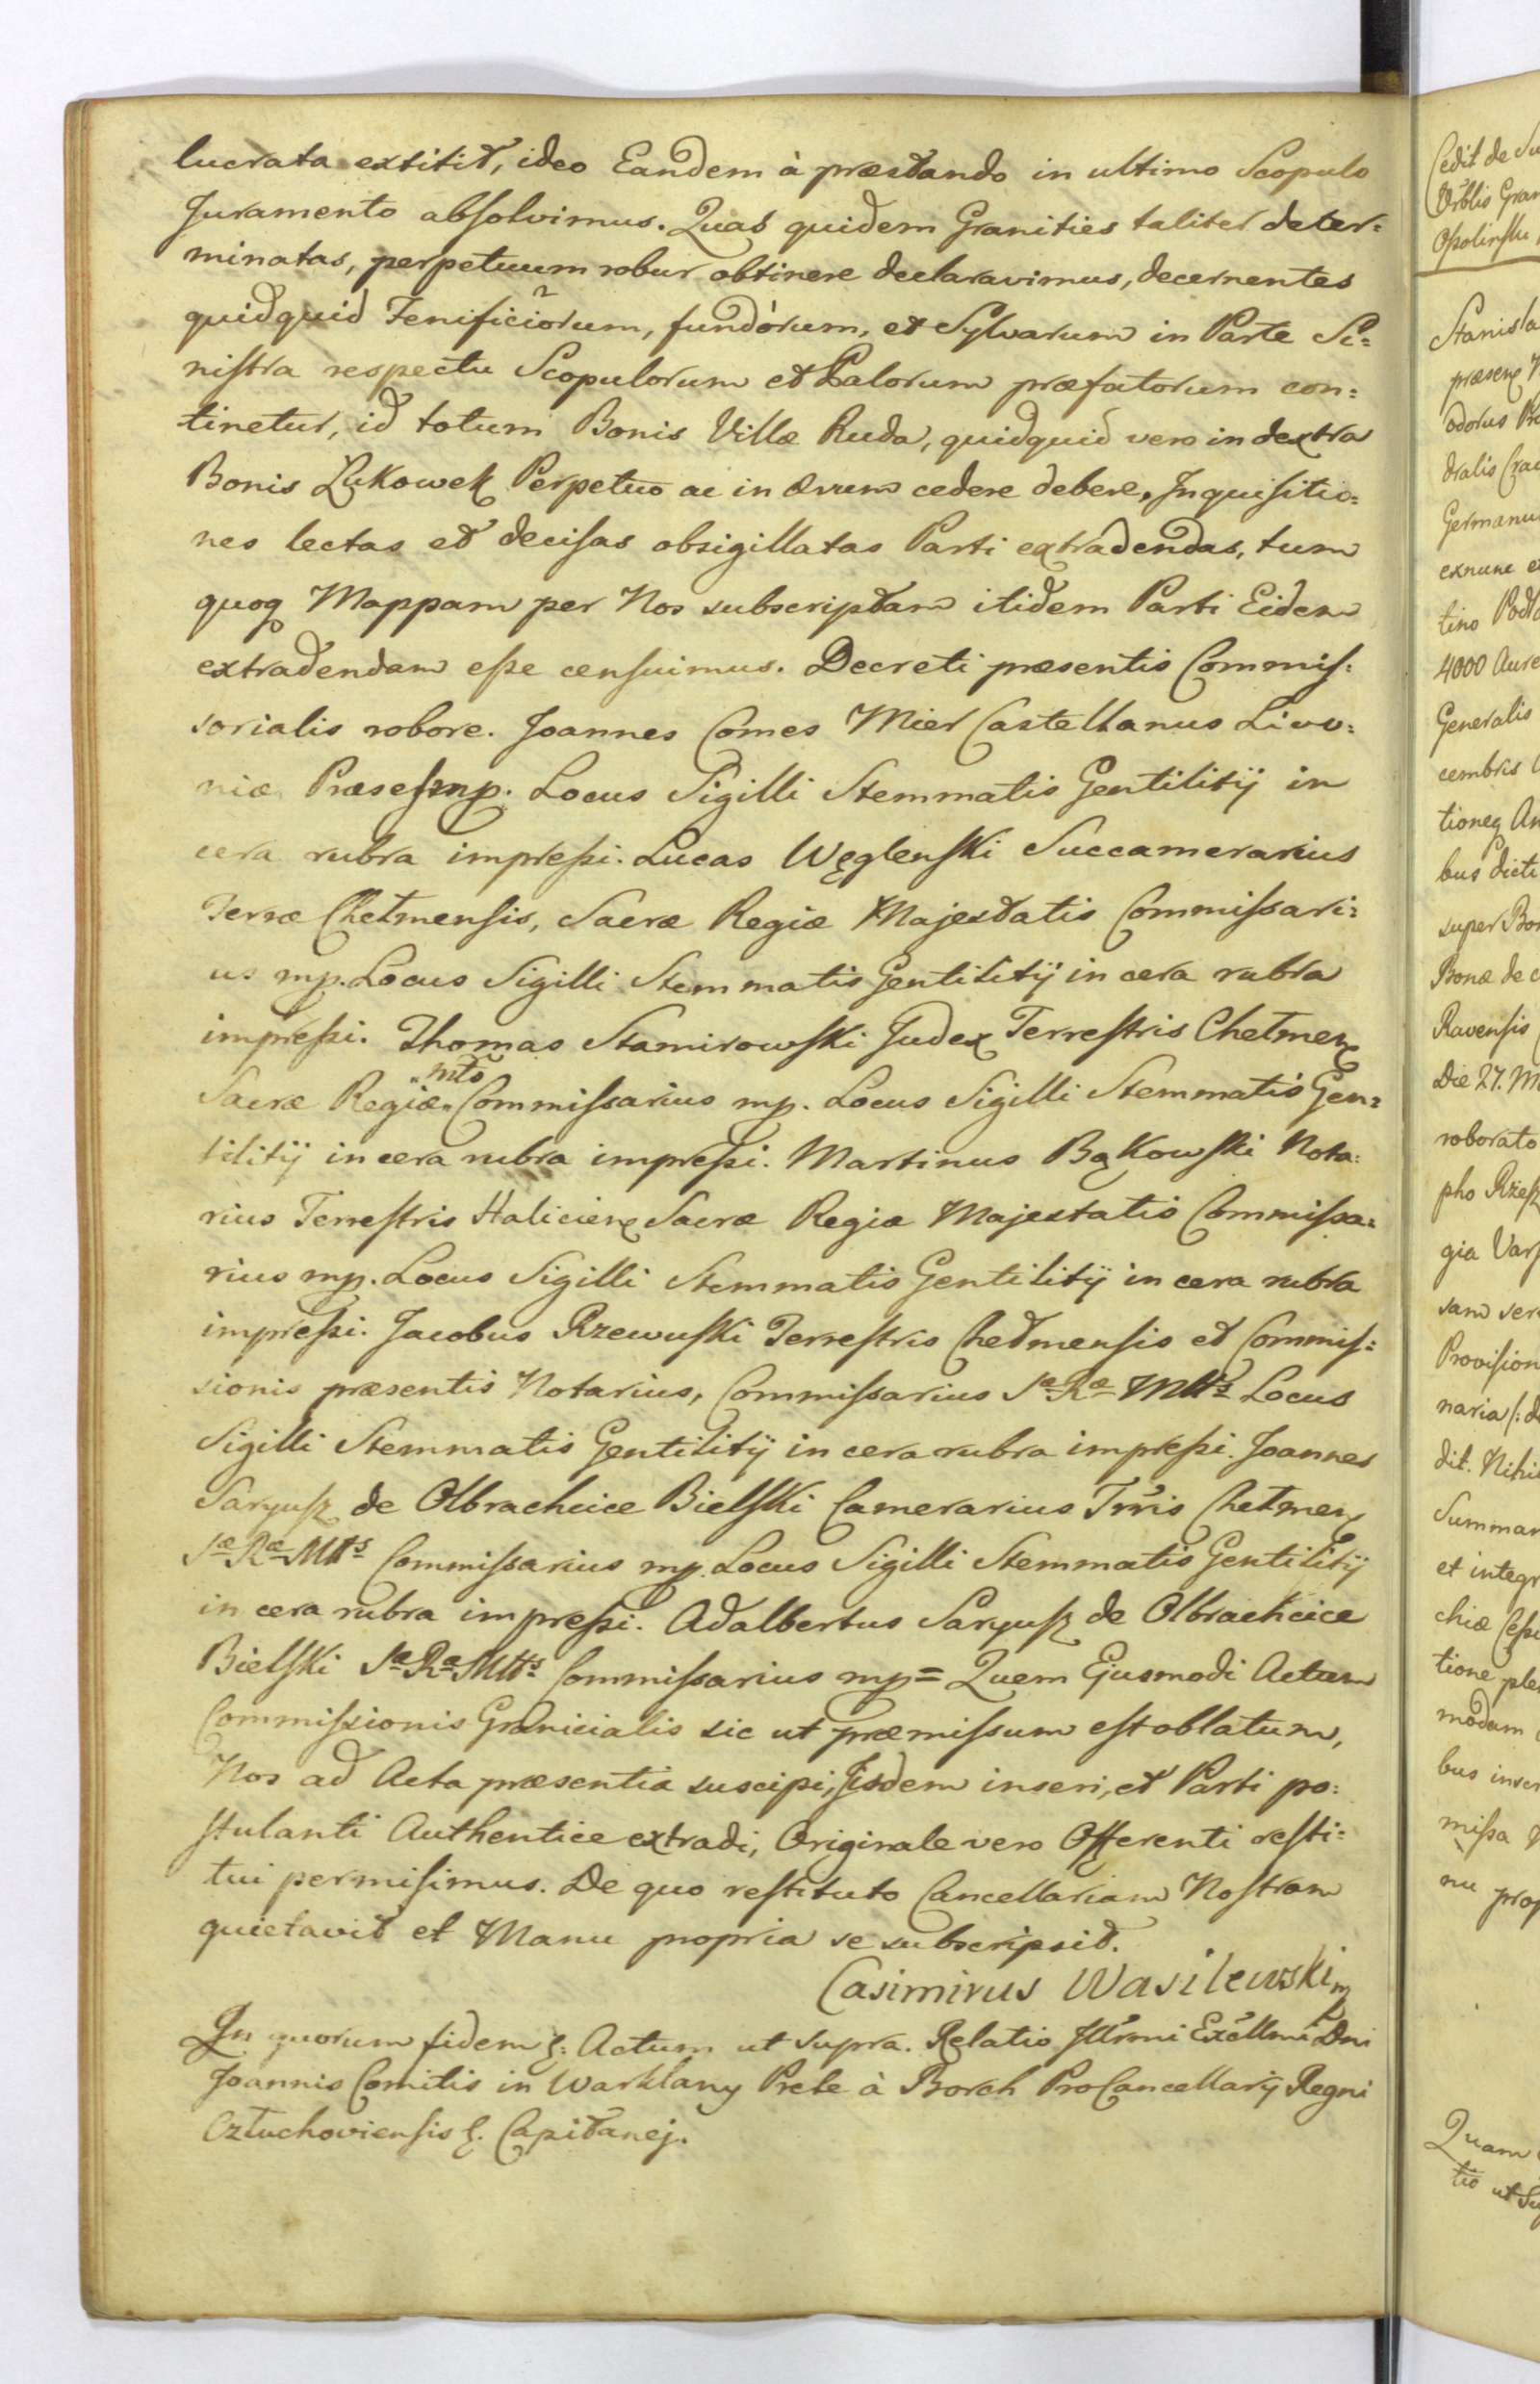 lucrata extitit, ideo Eandem à præstando in ultimo Scopulo
Juramento absolvimus. Quas quidem Granities taliter deter=
minatas, perpetuum robur obtinere declaravimus, decernentes
quidquid Fenificiorum, fundòrum, et Sylvarum in Parte Si=
nistra respectu Scopulorum et Palorum præfatorum con=
tinetur, id totum Bonis Villæ Ruda, quidquid vero in dextra
Bonis Lukowek Perpetuo ac in ævum cedere debere, Inquisitio=
nes lectas et decisas obsigillatas Parti extradendas, tum
quoq Mappam per Nos subscriptam itidem Parti Eidem
extradendam esse censuimus. Decreti præsentis Commis=
sorialis robore. Joannes Comes Mier Castellanus Livo=
niæ Præses mp. Locus Sigilli Stemmatis Gentilitÿ in
cera rubra impressi. Lucas Węglenski Succamerarius
Terræ Chełmensis, Sacræ Regiæ Majestatis Commissari=
us mp. Locus Sigilli Stemmatis Gentilitÿ in cera rubra
impressi. Thomas Stamirowski Judex Terrestris Chełmen
Sacræ Regiæ Mtis Commissarius mp. Locus Sigilli Stemmatis Gen=
tilitÿ in cera rubra impressi. Martinus Bąkowski Nota=
rius Terrestris Halicien Sacræ Regiæ Majestatis Commissa=
rius mp. Locus Sigilli Stemmatis Gentilitÿ in cera rubra
impressi. Jacobus Rzewuski Terrestris Chełmensis et Commis=
sionis præsentis Notarius, Commissarius Sæ Ræ Mttis Locus
Sigilli Stemmatis Gentilitÿ in cera rubra impressi. Joannes
Saryusz de Olbrachcice Bielski Camerarius Trris Chełmen
Sæ Ræ Mtts Commissarius mp. Locus Sigilli Stemmatis Gentilitÿ
in cera rubra impressi. Adalbertus Saryusz de Olbrachcice
Bielski Sæ Ræ Mtts Commissarius mp = Quem Ejusmodi Actum
Commissionis Granicialis sic ut præmissum est oblatum,
Nos ad Acta præsentia suscipi, Iisdem inseri, et Parti po=
stulanti Authentice extradi, Originale vero Offerenti resti=
tui permisimus. De quo restituto Cancellariam Nostram
quietavit et Manu propria se subscripsit.
Casimirus Wasilewski mp
In quorum fidem &: Actum ut supra. Relatio Illrmi Excllmi Dni
Joannis Comitis in Warklany Prele à Borch ProCancellarÿ Regni
Człuchoviensis &. Capitanej.
Cedit de
Stanisla
4000 Aure
Generalis
cembris
bus dicti
super Bon
Bonæ de
Ravensis
Die 27. M
roborato
gia Vars
Provision
dit. Nihil
Summam
et integr
tione ple
modum
bus inser
missa
nu prop
Quam